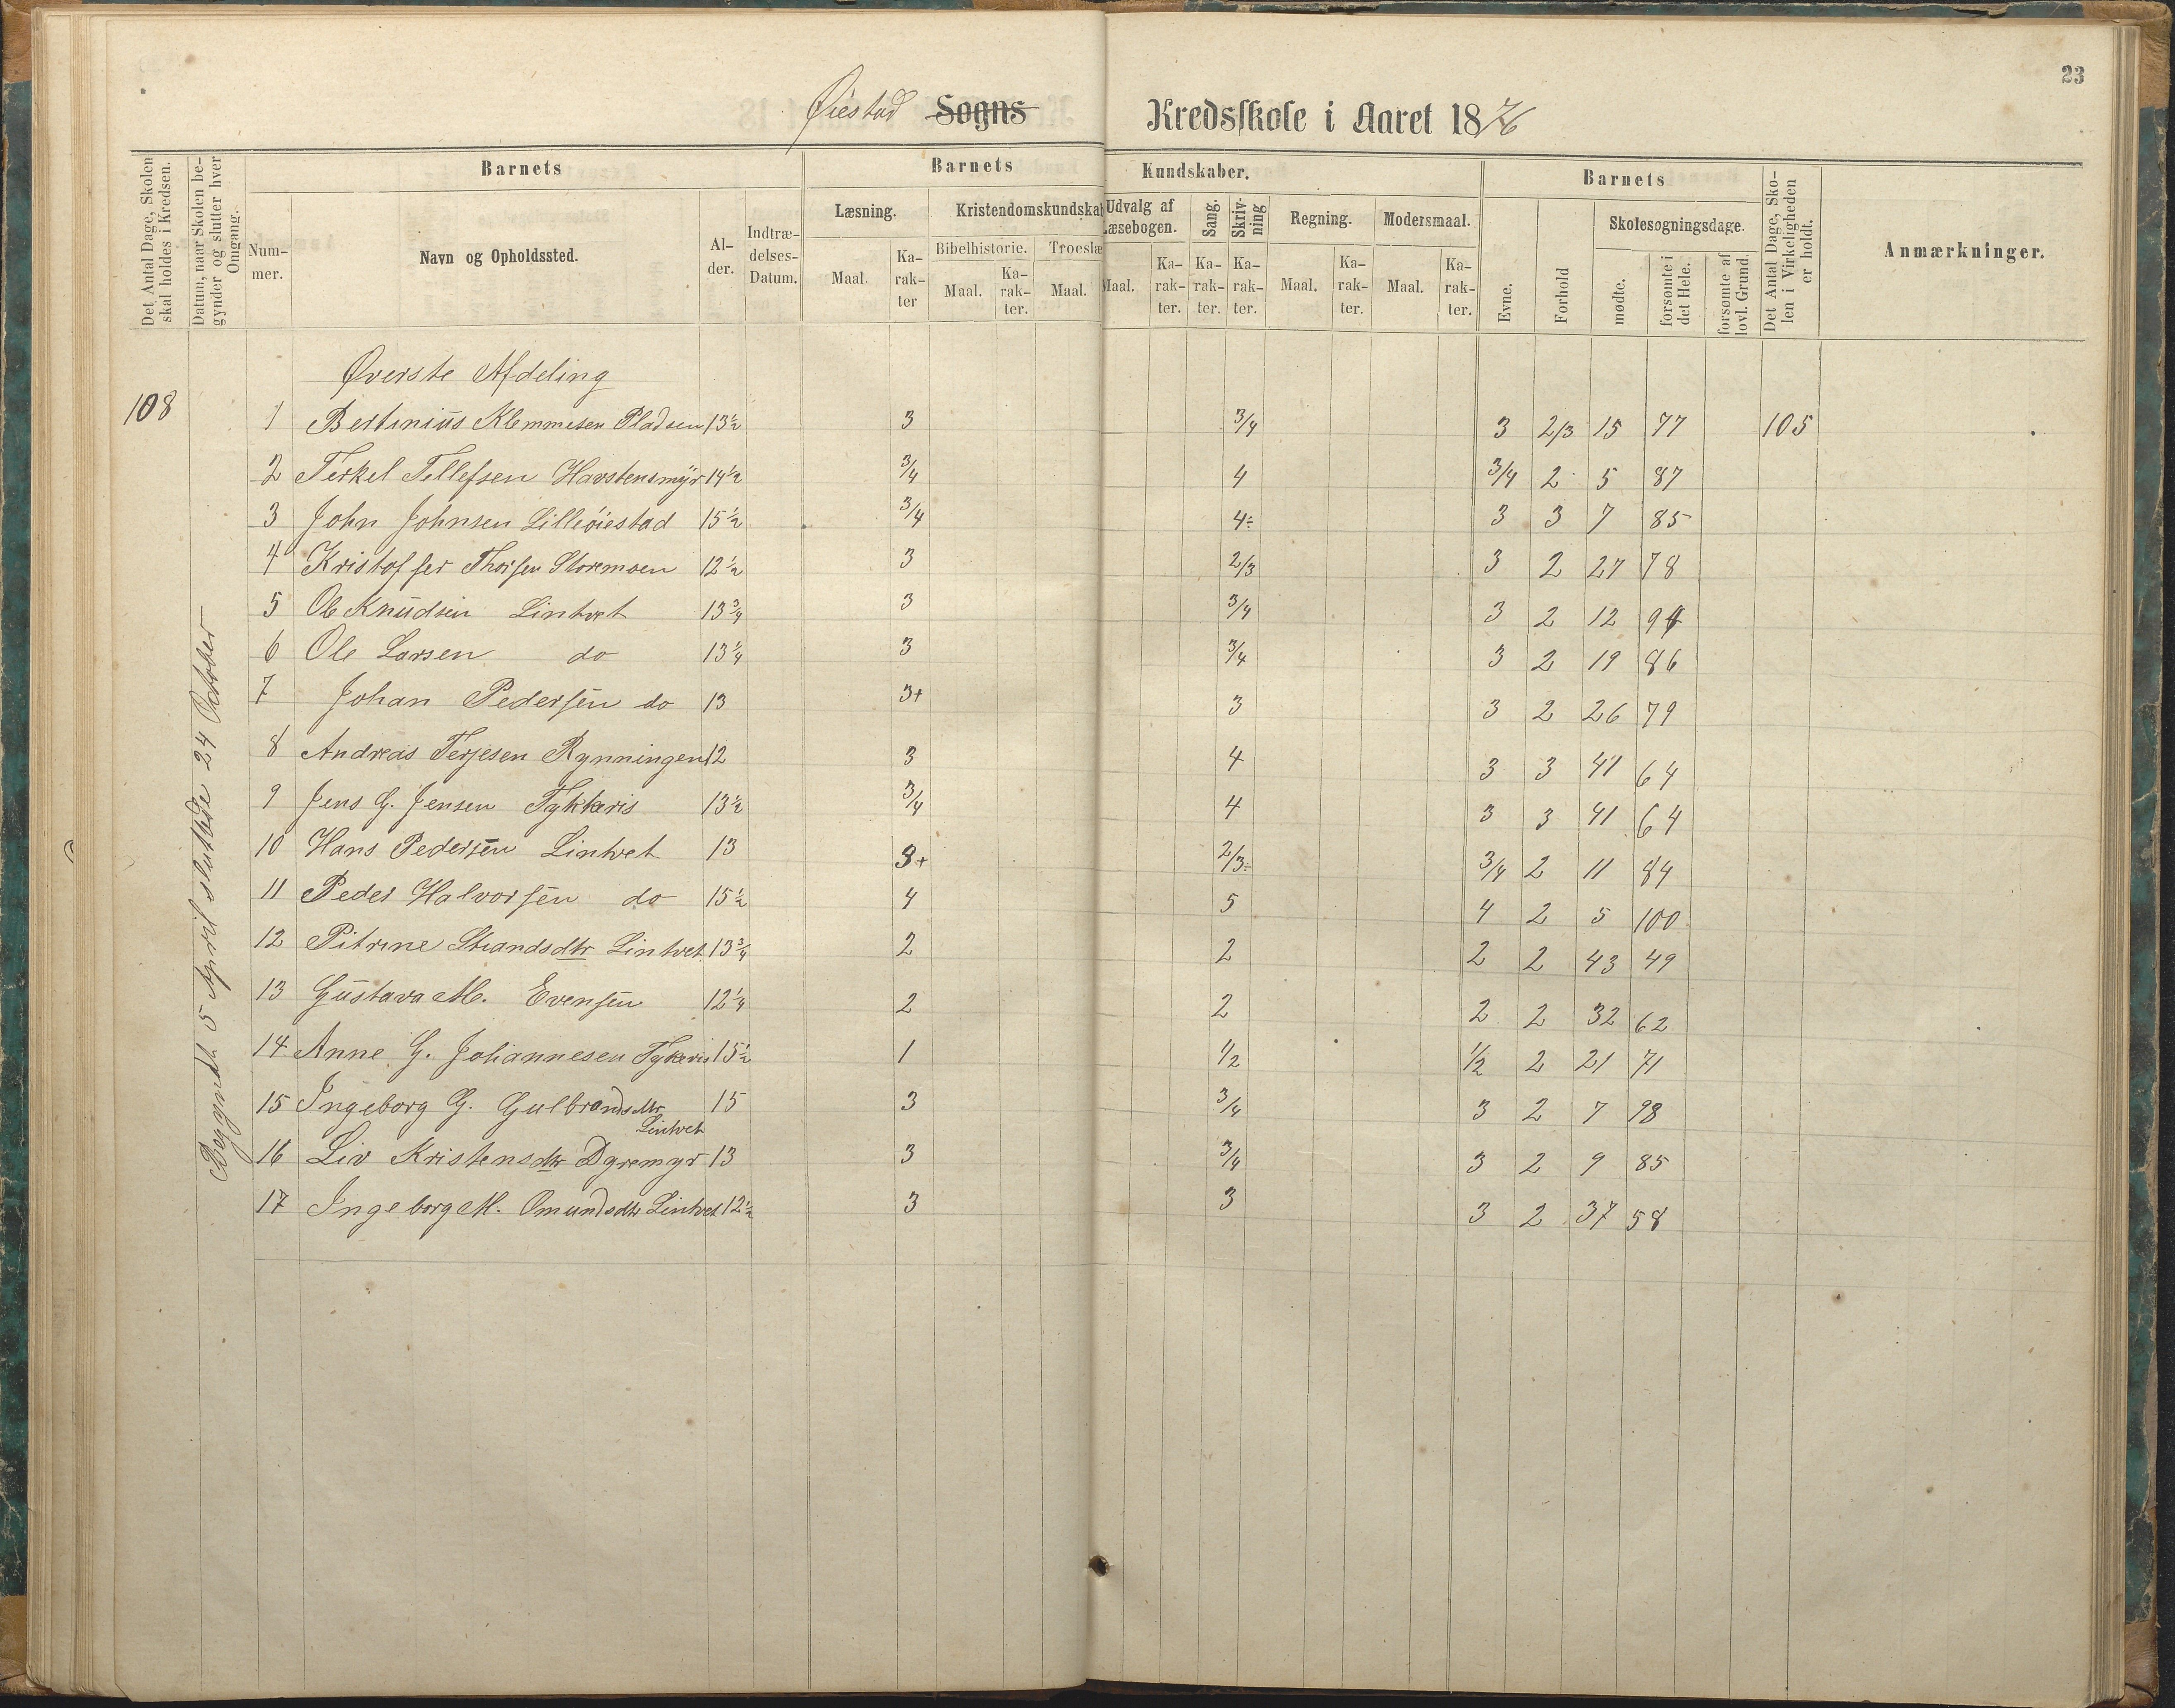 23
Øiestad Sogns Kredsskole i Aaret 1876
Det Antal Dage, Skolen skal holdes i Kredsen.
Datum, naar Skolen begynder og slutter hver Omgang.
Barnets
Num-
mer.
Navn og Opholdssted.
Al-
der.
Indtræ-
delses-
Datum.
Barnets Kundskaber.
Læsning.
Maal.
Ka-
rak-
ter
Kristendomskundskab
Bibelhistorie.
Maal.
Ka-
rak-
ter.
Troeslæ
Maal.
Udvalg af
Læsebogen.
Maal.
Ka-
rak-
ter.
Sang.
Ka-
rak-
ter.
Skriv-
ning
Ka-
rak-
ter.
Regning.
Maal.
Ka-
rak-
ter.
Modersmaal.
Maal.
Ka-
rak-
ter.
Barnets
Evne.
Forhold
Skolesøgningsdage.
mødte.
forsømte i
det Hele.
forsømte af
lovl. Grund.
Det Antal Dage, Sko-
len i Virkeligheden
er holdt.
Anmærkninger.
Øverste Afdeling
108
Begyndt 5 April sluttede 24 October
1 Bertinius Klemmesen Pladsen 13½ 3 3/4 3 2/3 15 77 105
2 Terkel Tellefsen Havstensmyr 14½ 3/4 4 3/4 2 5 87
3 John Johnsen Lilleøiestad 15½ 3/4 4÷ 3 3 7 85
4 Kristoffer Thorsen Storemoen 12½ 3 2/3 3 2 27 78
5 Ole Knudsen Lintvet 13¾ 3 3/4 3 2 12 94
6 Ole Larsen do 13¼ 3 3/4 3 2 19 86
7 Johan Pedersen do 13 3+ 3 3 2 26 79
8 Andreas Terjesen Rynningen 12 3 4 3 3 41 64
9 Jens G. Jensen Tykkeris 13½ 3/4 4 3 3 41 64
10 Hans Pedersen Lintvet 13 3+ 2/3÷ 3/4 2 11 84
11 Peder Halvorsen do 15½ 4 5 4 2 5 100
12 Pitrine Strandsdtr Lintvet 13¾ 2 2 2 2 43 49
13 Gustava M. Evensen 12¼ 2 2 2 2 32 62
14 Anne G. Johannesen Tykeris 15½ 1 1/2 1/2 2 21 71
15 Ingeborg G. Gulbrandsdtr 15 3 3/4 3 2 7 98
Lintvet
16 Liv Kristensdtr Dyremyr 13 3 3/4 3 2 9 85
17 Ingeborg M. Omundsdtr Lintvet 12½ 3 3 3 2 37 58